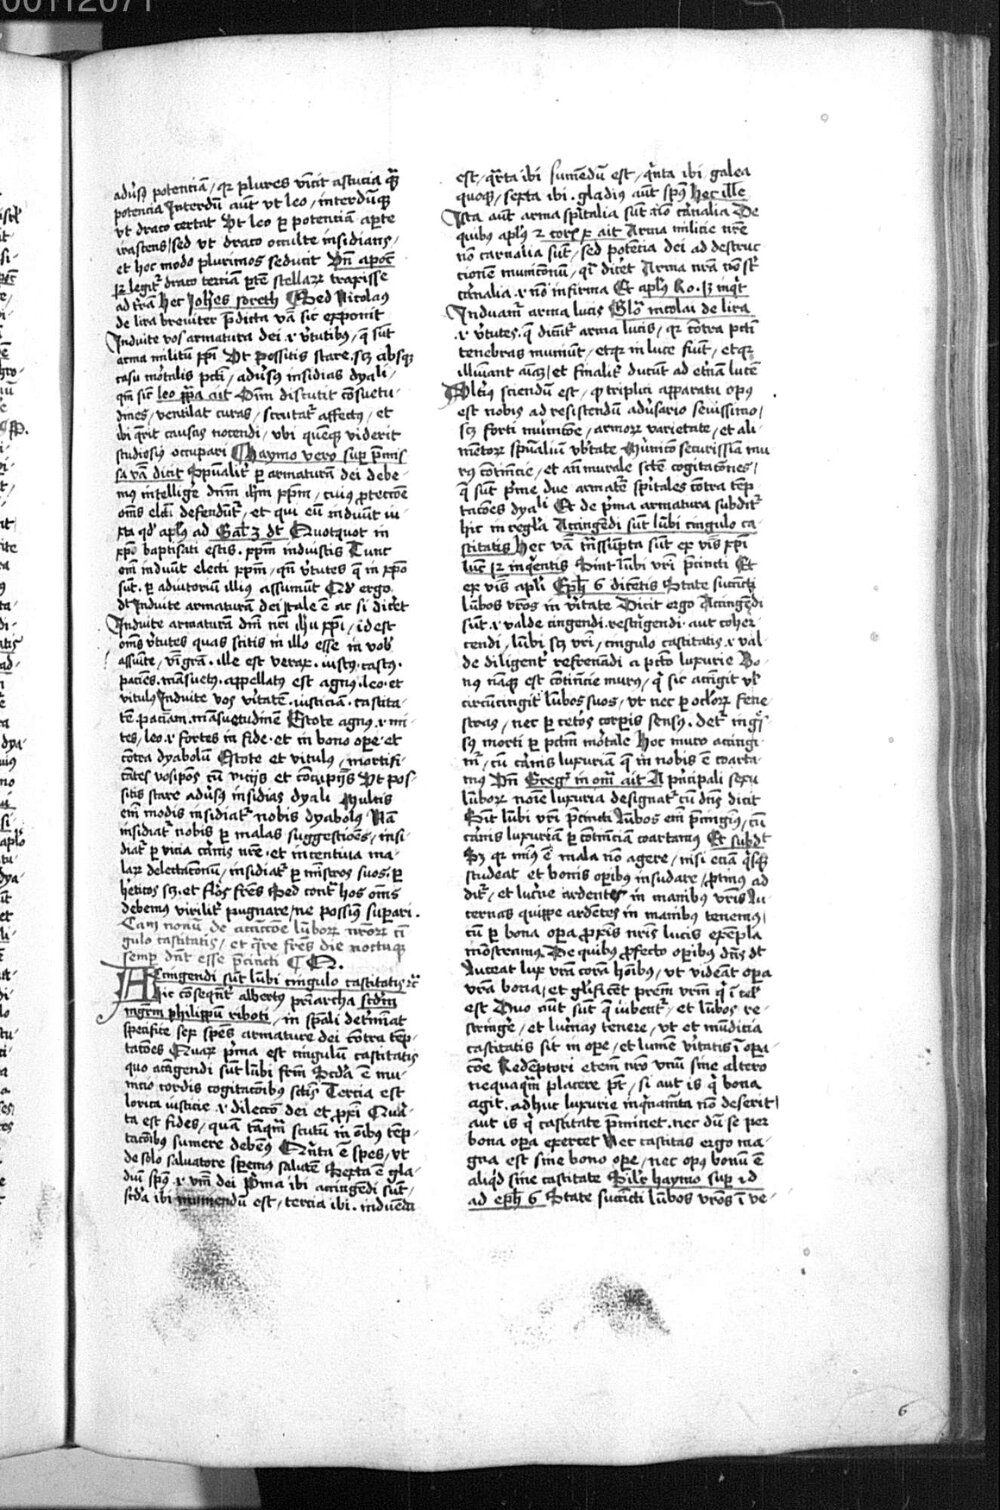 00112071
adũsꝰ potentiã / qꝛ plures vĩcit astucia q̃ȝ
potencia Interdũ aũt vt leo / interdũqȝ
vt draco certat Vt leo ꝑ potentiã aꝑte
irascens / sed vt draco occulte insidians /
et hoc modo plurimos seducit Vñ apoc̃
ꝑ legitʳ draco terciã ꝑtẽ stellaꝝ traxisse
ad trã Hec Joh̃es soreth Sed Nicolaꝰ
de lira breuiter p̃dicta v̾a sic exponit
Induite vos armatura dei .i. v̾tutibꝰ / que sũt
arma militũ xp̃i Vt possitis stare .sȝ absqȝ
casu mortalis pctĩ / adũsꝰ insidias dyali /
qm̃ sic̃ leo pp̃a ait Oĩm discutit cõsuetu-
dines / ventilat curas / scrutatʳ affectꝰ / et
ibi q̃rit causas nocendi / vbi quẽqȝ viderit
studiosiꝰ occupari Haymo vero suꝑ p̃mis-
sa v̾a dicit Spũalitʳ ꝑ armaturã dei debe-
mꝰ intellige dñm ih̃m xp̃m / cuiꝰ protectõe
om̃s elcĩ defendũtʳ / et qui eũ induũt iu-
xta qd̾ apl̾s ad Gal̾ 3 dt̃ Quotquot in
xp̃o baptisati estis . xp̃m induistis Tunc
em̃ induũt electi xp̃m / qñ v̾tutes que in xp̃o
sũt . ꝑ adiutoriũ illiꝰ assumũt Qd̾ ergo
dt̃ Induite armaturã dei / tale ẽ ac si dicet̾
Induite armaturã dñi nr̃i ih̾u xp̃i / id est
om̃s v̾tutes quas scitis in illo esse in vob̾
assũite / v̾i gr̃a . ille est verax . iustꝰ . castꝰ .
paciẽs . mãsuetꝰ . appellatꝰ est agnꝰ . leo . et
vitulꝰ Induite vos v̾itatẽ . iusticiam . castita-
tẽ . paciãm . mãsuetudinẽ Estote agnꝰ . i . mi-
tes / leo .i. fortes in fide . et in bono oꝑe . et
cõtra dyabolũ Estote et vitulꝰ / mortifi-
cãtes vosip̃os cũ vicijs et cõcupijs Vt pos-
sitis stare adũsꝰ insidias dyali Multis
em̃ modis insidiatʳ nobis dyabolꝰ Nã
insidiatʳ nobis ꝑ malas suggestiões / insi-
diatʳ ꝑ vicia carnis nr̃e . et incentiua ma-
laꝝ delectacõnũ / insidiatʳ ꝑ mĩstros suos . ꝑ
h̾eticos .sȝ. et fl̾os fr̃es Sed cont̾ hos om̃s
debemꝰ virilitʳ pugnare / ne possimꝰ suꝑari .
Cam̃ nonũ de accĩctõe lũboꝝ nr̃oꝝ cĩ-
gulo castitatis / et q̃re fr̃es die noctuqȝ
semꝑ dñt esse p̃cincti
Accingendi sũt lũbi cingulo castitatis ⁊c̃
Hic cõseqñtʳ albertꝰ pr̃iarcha scd̾m
mgr̃m philippũ riboti / in sp̃ali det̾minat
specifice sex sp̃es armature dei cõtra tẽp-
tatões Quaꝝ p̃ma est cingulũ castitatis
quo accĩgendi sũt lũbi fr̃m Scd̾a ẽ mu-
nicio cordis cogitacõibꝰ sctĩs Tercia est
lorica iusticie .i. dilectõ dei et pxĩ Quar-
ta est fides / quã tãq̃m scutũ in oĩbꝰ tẽp-
tacõibꝰ sumere debemꝰ Quĩta ẽ spes / vt
de solo saluatore speremꝰ salutẽ Sexta ẽ gla-
diꝰ spũs .i. v̾bũ dei P̃ma ibi accingẽdi sũt /
scd̾a ibi muniendũ est / tercia ibi . induẽda
est / q̃rta ibi sumẽdũ est / q̃nta ibi . galea
quoqȝ / sexta ibi . gladiꝰ aũt spũs Hec ille
Ista aũt arma spũalia sũt nõ carnalia De
quibꝰ apl̾s 2 corꝭ x ait Arma milicie nr̃e
nõ carnalia sũt / sed potẽcia dei ad destruc-
tionẽ municionũ / q̃ si dicet̾ Arma nr̃a nõ st̃
carnalia .i. nõ infirma Et apl̾s Ro. 13 inq̃t
Induam̃ arma lucis Glõ nicolai de lira
.i. v̾tutes . que dicũtʳ arma lucis / qꝛ cõtra pctĩ
tenebras muniũt / etqꝛ in luce fiũt / etqꝛ
illuĩant aĩaȝ / et finalitʳ ducũt ad et̾nã lucẽ
Vlt̾iꝰ sciendũ est / ꝙ triplici apparatu opꝰ
est nobis ad resistendũ adũsario seuissimo /
sȝ forti municõe / armoꝝ varietate / et ali-
mẽtoꝝ spũaliũ vb̾tate Municõ securissima mu-
rꝰ cõtinẽcie / et añmurale sctẽ cogitatões /
que sũt p̃me due armatʳe spũales cõtra tẽp-
tacões dyali Et de p̃ma armatura subditʳ
hic in reg̾la Accingẽdi sũt lũbi cingulo ca-
stitatis Hec v̾a trãssũpta sũt ex v̾is xp̃i
luc̃ 12 inq̃entis Sint lũbi vr̃i p̃cincti Et
ex v̾is apl̾i Eph̾ 6 dicẽtis State succĩcti
lũbos vr̃os in v̾itate Dicit ergo Accingẽdi
sũt .i. valde cingendi . restrĩgendi . aut coher-
cendi / lũbi sȝ vr̃i / cingulo castitatis .i. val-
de diligent̾ refrenãdi a pctõ luxurie Bo-
nꝰ nãqȝ est cõtinẽcie murꝰ / q̃ sic accingit v̾l
circũcingit lũbos suos / vt nec ꝑ ocl̾oꝝ fene-
stras / nec ꝑ cet̾os corꝑis sensꝰ . det̾ ingr̃s-
sꝰ morti ꝑ pctm̃ mortale Hoc muro accingi-
mʳ / cũ carnis luxuriam que in nobis ẽ coarta-
mꝰ Vñ Greg̾ in om̃ ait A p̃ncipali sexu
lũboꝝ noĩe luxuria designatʳ cũ dñs dicit
Sint lũbi vr̃i p̃cincti Lũbos em̃ p̃cingimꝰ / cũ
carnis luxuriam ꝑ cõtinẽciam coartamꝰ Et subdt̃
Sȝ qꝛ minꝰ ẽ mala nõ agere / nisi eciã q̃sqȝ
studeat et bonis oꝑibꝰ insudare / ꝓtinꝰ ad-
ditʳ / et lucerne ardentes in manibꝰ vr̃is Lu-
cernas quippe ardẽtes in manibꝰ tenemꝰ /
cũ ꝑ bona oꝑa ꝓxĩs nr̃is lucis exẽpla
mõstramꝰ . De quibꝰ ꝓfecto oꝑibꝰ dñs dt̃
Luceat lux vr̃a corã hoĩbꝰ / vt videãt oꝑa
vr̃a bona / et gl̾ificẽt pr̃em vr̃m qui ĩ cel̾
est Duo aũt sũt que iubentʳ / et lũbos re-
stringe̾ / et lucernas tenere / vt et mũdicia
castitatis sit in oꝑe / et lumẽ v̾itatis ĩ oꝑa-
cõe Redẽptori etem̃ nr̃o vnũ sine altero
nequaq̃m placere pt̃ / si aut is qui bona
agit . adhuc luxurie inq̃namẽta nõ deserit /
aut is qui castitate p̃minet . nec dũ se ꝑ
bona oꝑa exercet Nec castitas ergo ma-
gna est sine bono oꝑe / nec opꝰ bonũ ẽ
aliqd̾ sine castitate Sil̾r haymo suꝑ id
ad eph̾ 6 State succĩcti lũbos vr̃os ĩ ve-
6